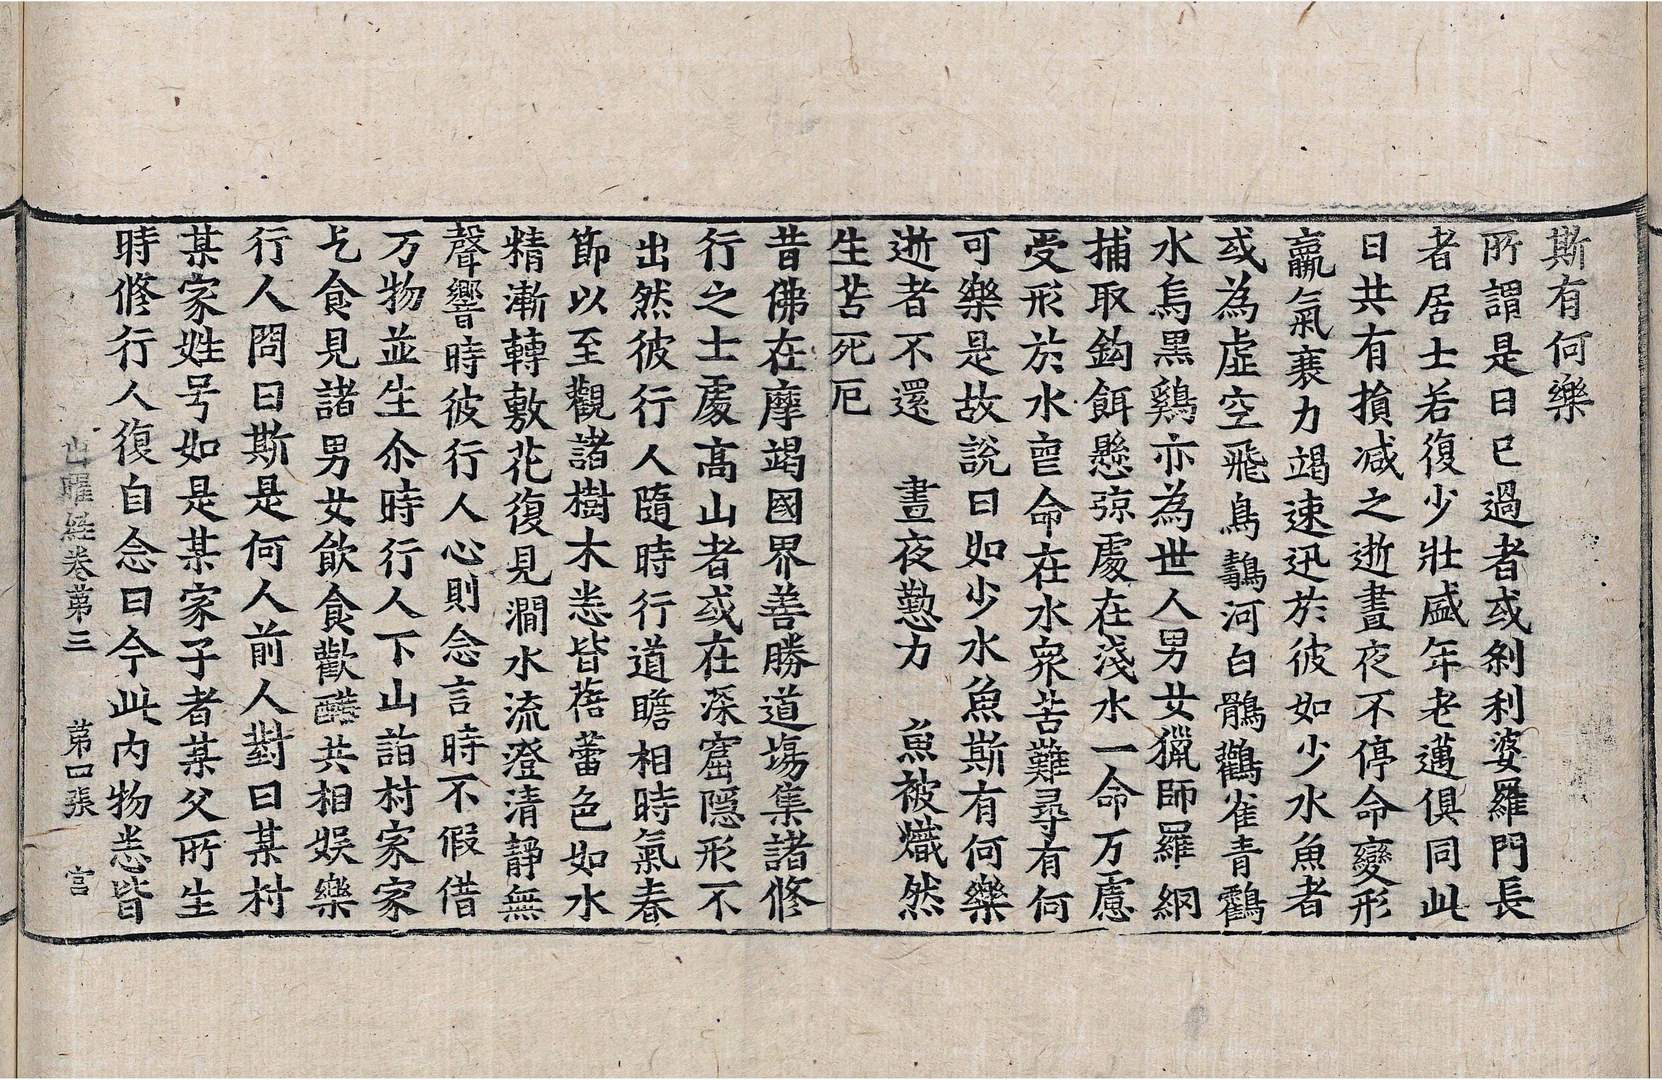 斯有何樂
所謂是日已過者或刹利婆羅門長
者居士若復少壯盛年老邁俱同此
日共有損減之逝晝夜不停命變形
羸氣衰力竭速迅於彼如少水魚者
或為虛空飛鳥鷫河白鶻鸛雀青鸖
水烏黑鷄亦為世人男女獵師羅網
捕取鈎餌懸弶處在淺水一命万慮
受形於水壴命在水衆苦難尋有何
可樂是故說曰如少水魚斯有何樂
逝者不還 晝夜懃力 魚被熾然
生苦死厄
昔佛在摩竭國界善勝道場集諸修
行之士處高山者或在深窟隱形不
出然彼行人隨時行道瞻相時氣春
節以至觀諸樹木悉皆蓓蕾色如水
精漸轉敷花復見澗水流澄清靜無
聲響時彼行人心則念言時不假借
万物並生尒時行人下山詣村家家
乞食見諸男女飲食歡醼共相娛樂
行人問曰斯是何人前人對曰某村
某家姓号如是某家子者某父所生
時修行人復自念曰今此内物悉皆
出曜経卷第三 第四張 宫